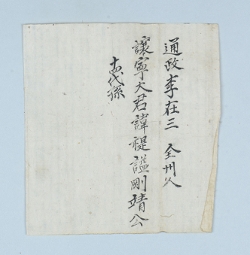 通政李在三 全州人
讓寧大君諱禔諡剛靖公
十代孫